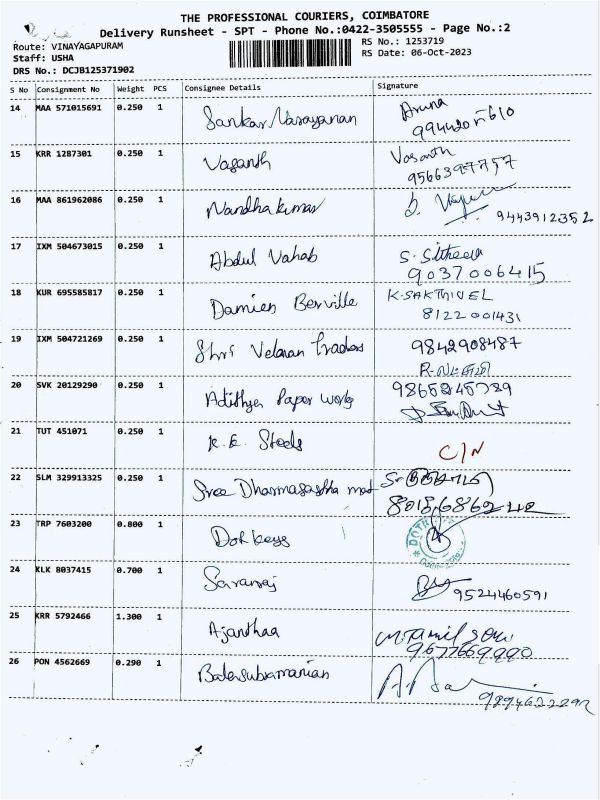 THE PROFESSIONAL COURIERS, COIMBATORE
Delivery Runsheet - SPT - Phone No.:0422-3505555 - Page No.:2
Route: VINAYAGAPURAM
Staff: USHA
DRS No.: DCJB125371902
RS No.: 1253719
RS Date: 06-Oct-2023
S No Consignment No Weight PCS Consignee Details Signature
14 MAA 571015691 0.250 1 Sankar Narayanan Aruna
15 KRR 1287301 0.250 1 Vasanth Vasanth
9566397757
16 MAA 861962086 0.250 1 Nandhakumar
9443912352
17 IXM 504673015 0.250 1 Abdul Vahab
9037006415
18 KUR 695585817 0.250 1 Damien Berville K.SAKTHIVEL
8122001431
19 IXM 504721269 0.250 1 Shri Velavan Traders 9842908487
20 SVK 20129290 0.250 1 Adithya Paper works 9865245789
21 TUT 451071 0.250 1 K.E. Steels C/N
22 SLM 329913325 0.250 1 Sree Dharmasastha
23 TRP 7603200 0.800 1 Dot keys
24 KLK 8037415 0.700 1 Saravanaj
9524460591
25 KRR 5792466 1.300 1 Ajanthaa M.Tamil
9677669990
26 PON 4562669 0.290 1 Balasubramanian